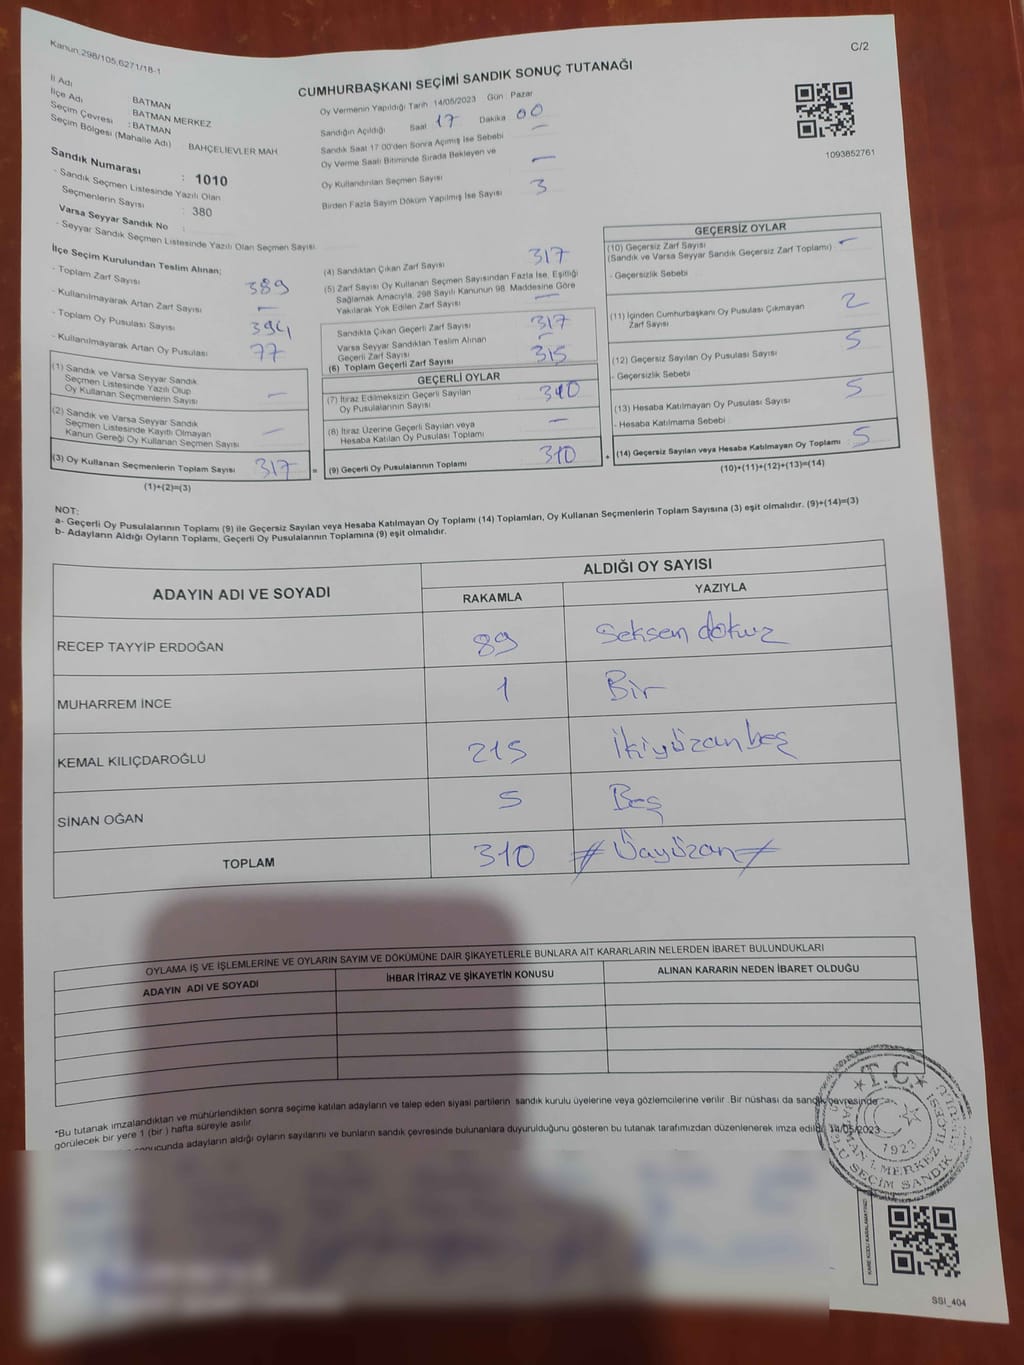 Kanun:298/105,6271/18-1
C/2
CUMHURBAŞKANI SEÇİMİ SANDIK SONUÇ TUTANAĞI
İl Adı
BATMAN
İlçe Adı
BATMAN MERKEZ
Seçim Çevresi : BATMAN
Seçim Bölgesi (Mahalle Adı) BAHÇELİEVLER MAH
Sandık Numarası : 1010
- Sandık Seçmen Listesinde Yazılı Olan
Seçmenlerin Sayısı : 380
Varsa Seyyar Sandık No :
- Seyyar Sandık Seçmen Listesinde Yazılı Olan Seçmen Sayısı:
Oy Vermenin Yapıldığı Tarih 14/05/2023 Gün Pazar
Sandığın Açıldığı Saat 17 Dakika 00
Sandık Saat 17:00'den Sonra Açımış İse Sebebi —
Oy Verme Saati Bitiminde Sırada Bekleyen ve
Oy Kullandırılan Seçmen Sayısı —
Birden Fazla Sayım Döküm Yapılmış İse Sayısı 3
1093852761
İlçe Seçim Kurulundan Teslim Alınan;
- Toplam Zarf Sayısı 389
- Kullanılmayarak Artan Zarf Sayısı —
- Toplam Oy Pusulası Sayısı 394
- Kullanılmayarak Artan Oy Pusulası 77
(1) Sandık ve Varsa Seyyar Sandık
Seçmen Listesinde Yazılı Olup
Oy Kullanan Seçmenlerin Sayısı —
(2) Sandık ve Varsa Seyyar Sandık
Seçmen Listesinde Kayıtlı Olmayan
Kanun Gereği Oy Kullanan Seçmen Sayısı —
(3) Oy Kullanan Seçmenlerin Toplam Sayısı 317 =
(1)+(2)=(3)
(4) Sandıktan Çıkan Zarf Sayısı 317
(5) Zarf Sayısı Oy Kullanan Seçmen Sayısından Fazla İse, Eşitliği
Sağlamak Amacıyla, 298 Sayılı Kanunun 98. Maddesine Göre
Yakılarak Yok Edilen Zarf Sayısı —
Sandıkta Çıkan Geçerli Zarf Sayısı 317
Varsa Seyyar Sandıktan Teslim Alınan
Geçerli Zarf Sayısı —
(6) Toplam Geçerli Zarf Sayısı 315
GEÇERLİ OYLAR
(7) İtiraz Edilmeksizin Geçerli Sayılan
Oy Pusulalarının Sayısı 310
(8) İtiraz Üzerine Geçerli Sayılan veya
Hesaba Katılan Oy Pusulası Toplamı —
(9) Geçerli Oy Pusulalarının Toplamı 310 +
GEÇERSİZ OYLAR
(10) Geçersiz Zarf Sayısı
(Sandık ve Varsa Seyyar Sandık Geçersiz Zarf Toplamı) —
- Geçersizlik Sebebi
(11) İçinden Cumhurbaşkanı Oy Pusulası Çıkmayan
Zarf Sayısı 2
(12) Geçersiz Sayılan Oy Pusulası Sayısı 5
- Geçersizlik Sebebi
(13) Hesaba Katılmayan Oy Pusulası Sayısı 5
- Hesaba Katılmama Sebebi
(14) Geçersiz Sayılan veya Hesaba Katılmayan Oy Toplamı 5
(10)+(11)+(12)+(13)=(14)
NOT:
a- Geçerli Oy Pusulalarının Toplamı (9) ile Geçersiz Sayılan veya Hesaba Katılmayan Oy Toplamı (14) Toplamları, Oy Kullanan Seçmenlerin Toplam Sayısına (3) eşit olmalıdır. (9)+(14)=(3)
b- Adayların Aldığı Oyların Toplamı, Geçerli Oy Pusulalarının Toplamına (9) eşit olmalıdır.
ADAYIN ADI VE SOYADI
ALDIĞI OY SAYISI
RAKAMLA YAZIYLA
RECEP TAYYİP ERDOĞAN 89 Seksen dokuz
MUHARREM İNCE 1 Bir
KEMAL KILIÇDAROĞLU 215 İkiyüzonbeş
SİNAN OĞAN 5 Beş
TOPLAM 310 # Üçyüzon #
OYLAMA İŞ VE İŞLEMLERİNE VE OYLARIN SAYIM VE DÖKÜMÜNE DAİR ŞİKAYETLERLE BUNLARA AİT KARARLARIN NELERDEN İBARET BULUNDUKLARI
ADAYIN ADI VE SOYADI İHBAR İTİRAZ VE ŞİKAYETİN KONUSU ALINAN KARARIN NEDEN İBARET OLDUĞU
*Bu tutanak imzalandıktan ve mühürlendikten sonra seçime katılan adayların ve talep eden siyasi partilerin sandık kurulu üyelerine veya gözlemcilerine verilir. Bir nüshası da sandık çevresinde
görülecek bir yere 1 (bir) hafta süreyle asılır.
sonucunda adayların aldığı oyların sayılarını ve bunların sandık çevresinde bulunanlara duyurulduğunu gösteren bu tutanak tarafımızdan düzenlenerek imza edildi. 14/05/2023
T.C.
1923
KARE KODU KARALAMAYINIZ
SSI_404